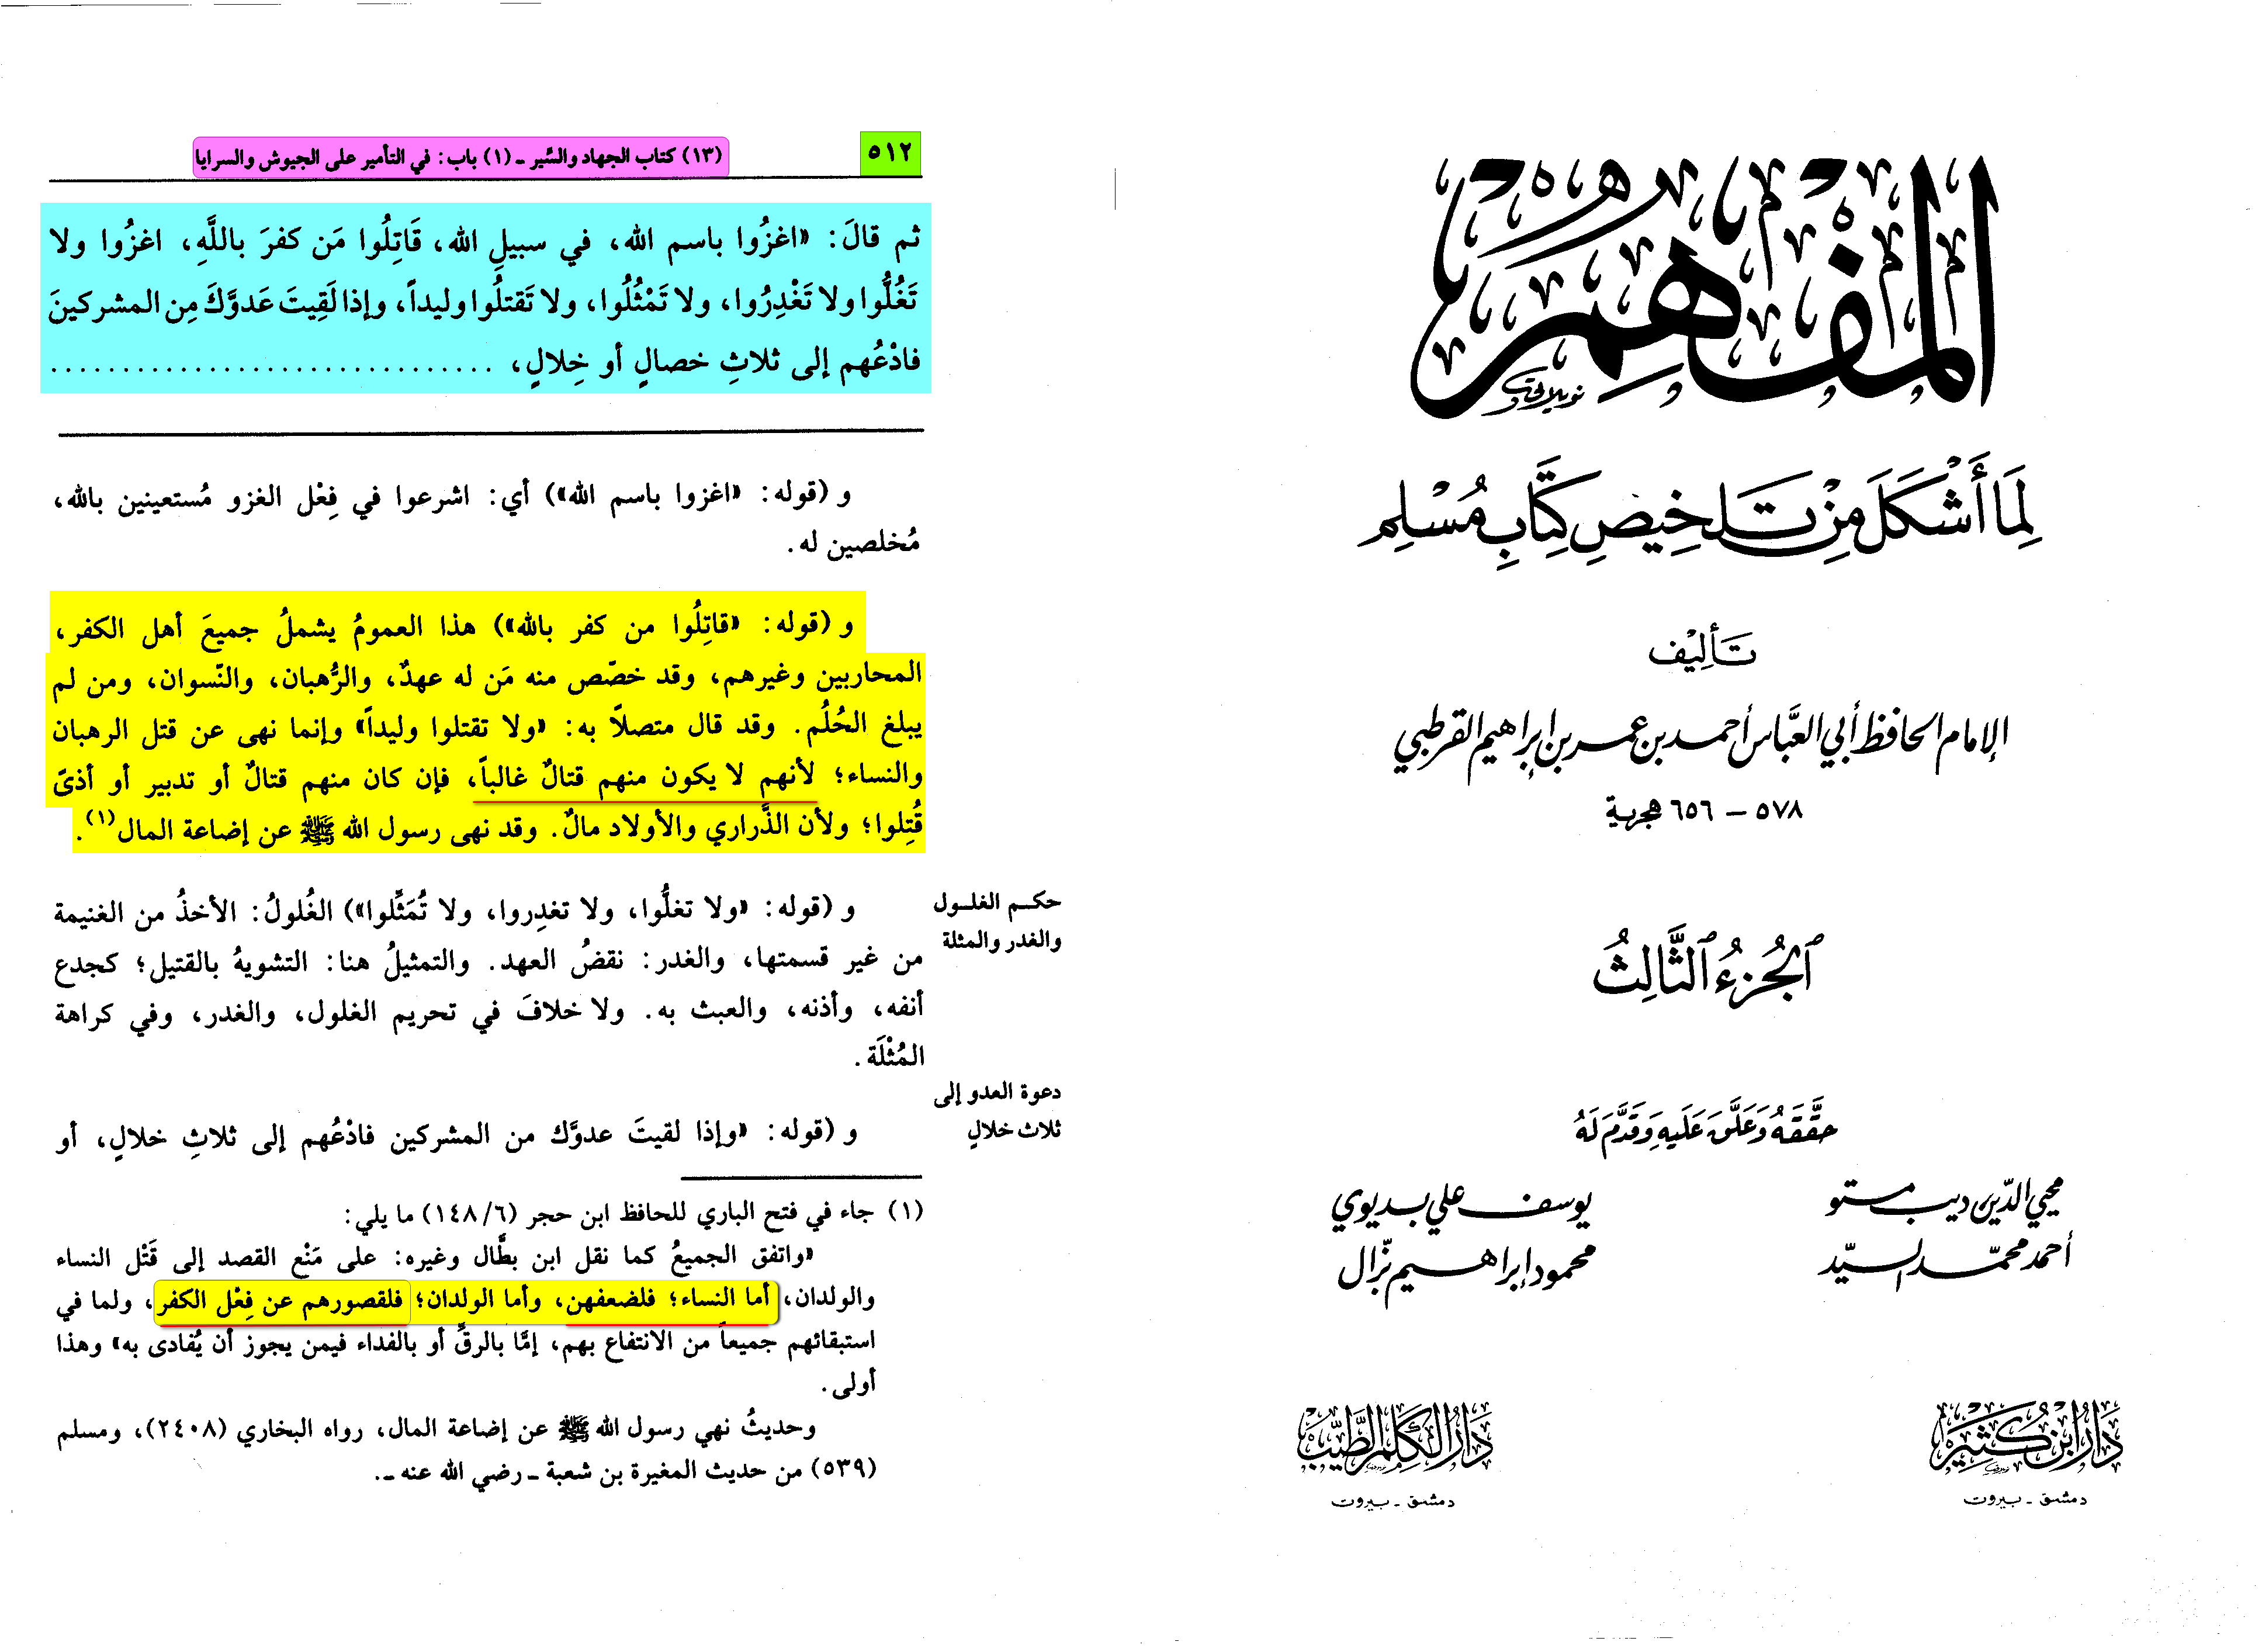 المفهم
لِمَا أَشْكَلَ مِنْ تَلخِيصِ كِتَابِ مُسْلِم
تَأليْف
الإمام الحافظ أبي العبَّاس أحمد بن عمر بن إبراهيم القرطبي
٥٧٨ – ٦٥٦ هجرية
اَلجُزءُ اَلثَّالِثُ
حَقَّقَهُ وَعَلَّقَ عَلَيهِ وَقَدَّمَ لَهُ
محيي الدّين ديب مستو
يوسف علي بديوي
أحمد محمّد السيّد
محمود إبراهيم نزّال
دار ابن كثير
دمشق ـ بيروت
دار الكلم الطيب
دمشق ـ بيروت
٥١٢
(١٣) كتاب الجهاد والسِّير ـ (١) باب: في التأمير على الجيوش والسرايا
ثم قالَ: «اغزُوا باسم الله، في سبيلِ الله، قَاتِلُوا مَن كفرَ باللَّهِ، اغزُوا ولا
تَغُلُّوا ولا تَغْدِرُوا، ولا تَمْثُلُوا، ولا تَقتلُوا وليداً، وإذا لَقِيتَ عَدوَّكَ مِن المشركينَ
فادْعُهم إلى ثلاثِ خصالٍ أو خِلالٍ، ...............................
و (قوله: «اغزوا باسم الله») أي: اشرعوا في فِعْل الغزو مُستعينين بالله،
مُخلصين له.
و (قوله: «قاتِلُوا من كفر بالله») هذا العمومُ يشملُ جميعَ أهل الكفر،
المحاربين وغيرهم، وقد خصّص منه مَن له عهدٌ، والرُّهبان، والنّسوان، ومن لم
يبلغ الحُلُم. وقد قال متصلاً به: «ولا تقتلوا وليداً» وإنما نهى عن قتل الرهبان
والنساء؛ لأنهم لا يكون منهم قتالٌ غالباً، فإن كان منهم قتالٌ أو تدبير أو أذىً
قُتِلوا؛ ولأن الذَّراري والأولاد مالٌ. وقد نهى رسول الله ﷺ عن إضاعة المال(١).
حكم الغلول
والغدر والمثلة
و (قوله: «ولا تغلُّوا، ولا تغدِروا، ولا تُمَثِّلوا») الغُلولُ: الأخذُ من الغنيمة
من غير قسمتها، والغدر: نقضُ العهد. والتمثيلُ هنا: التشويهُ بالقتيل؛ كجدع
أنفه، وأذنه، والعبث به. ولا خلافَ في تحريم الغلول، والغدر، وفي كراهة
المُثْلَة.
دعوة العدو إلى
ثلاث خلالٍ
و (قوله: «وإذا لقيتَ عدوَّك من المشركين فادْعُهم إلى ثلاثِ خلالٍ، أو
(١) جاء في فتح الباري للحافظ ابن حجر (٦/١٤٨) ما يلي:
«واتفق الجميعُ كما نقل ابن بطَّال وغيره: على مَنْع القصد إلى قَتْل النساء
والولدان، أما النساء؛ فلضعفهن، وأما الولدان؛ فلقصورهم عن فِعْل الكفر، ولما في
استبقائهم جميعاً من الانتفاع بهم، إمَّا بالرقِّ أو بالفداء فيمن يجوز أن يُفادى به» وهذا
أولى.
وحديثُ نهي رسول الله ﷺ عن إضاعة المال، رواه البخاري (٢٤٠٨)، ومسلم
(٥٣٩) من حديث المغيرة بن شعبة ـ رضي الله عنه ـ.